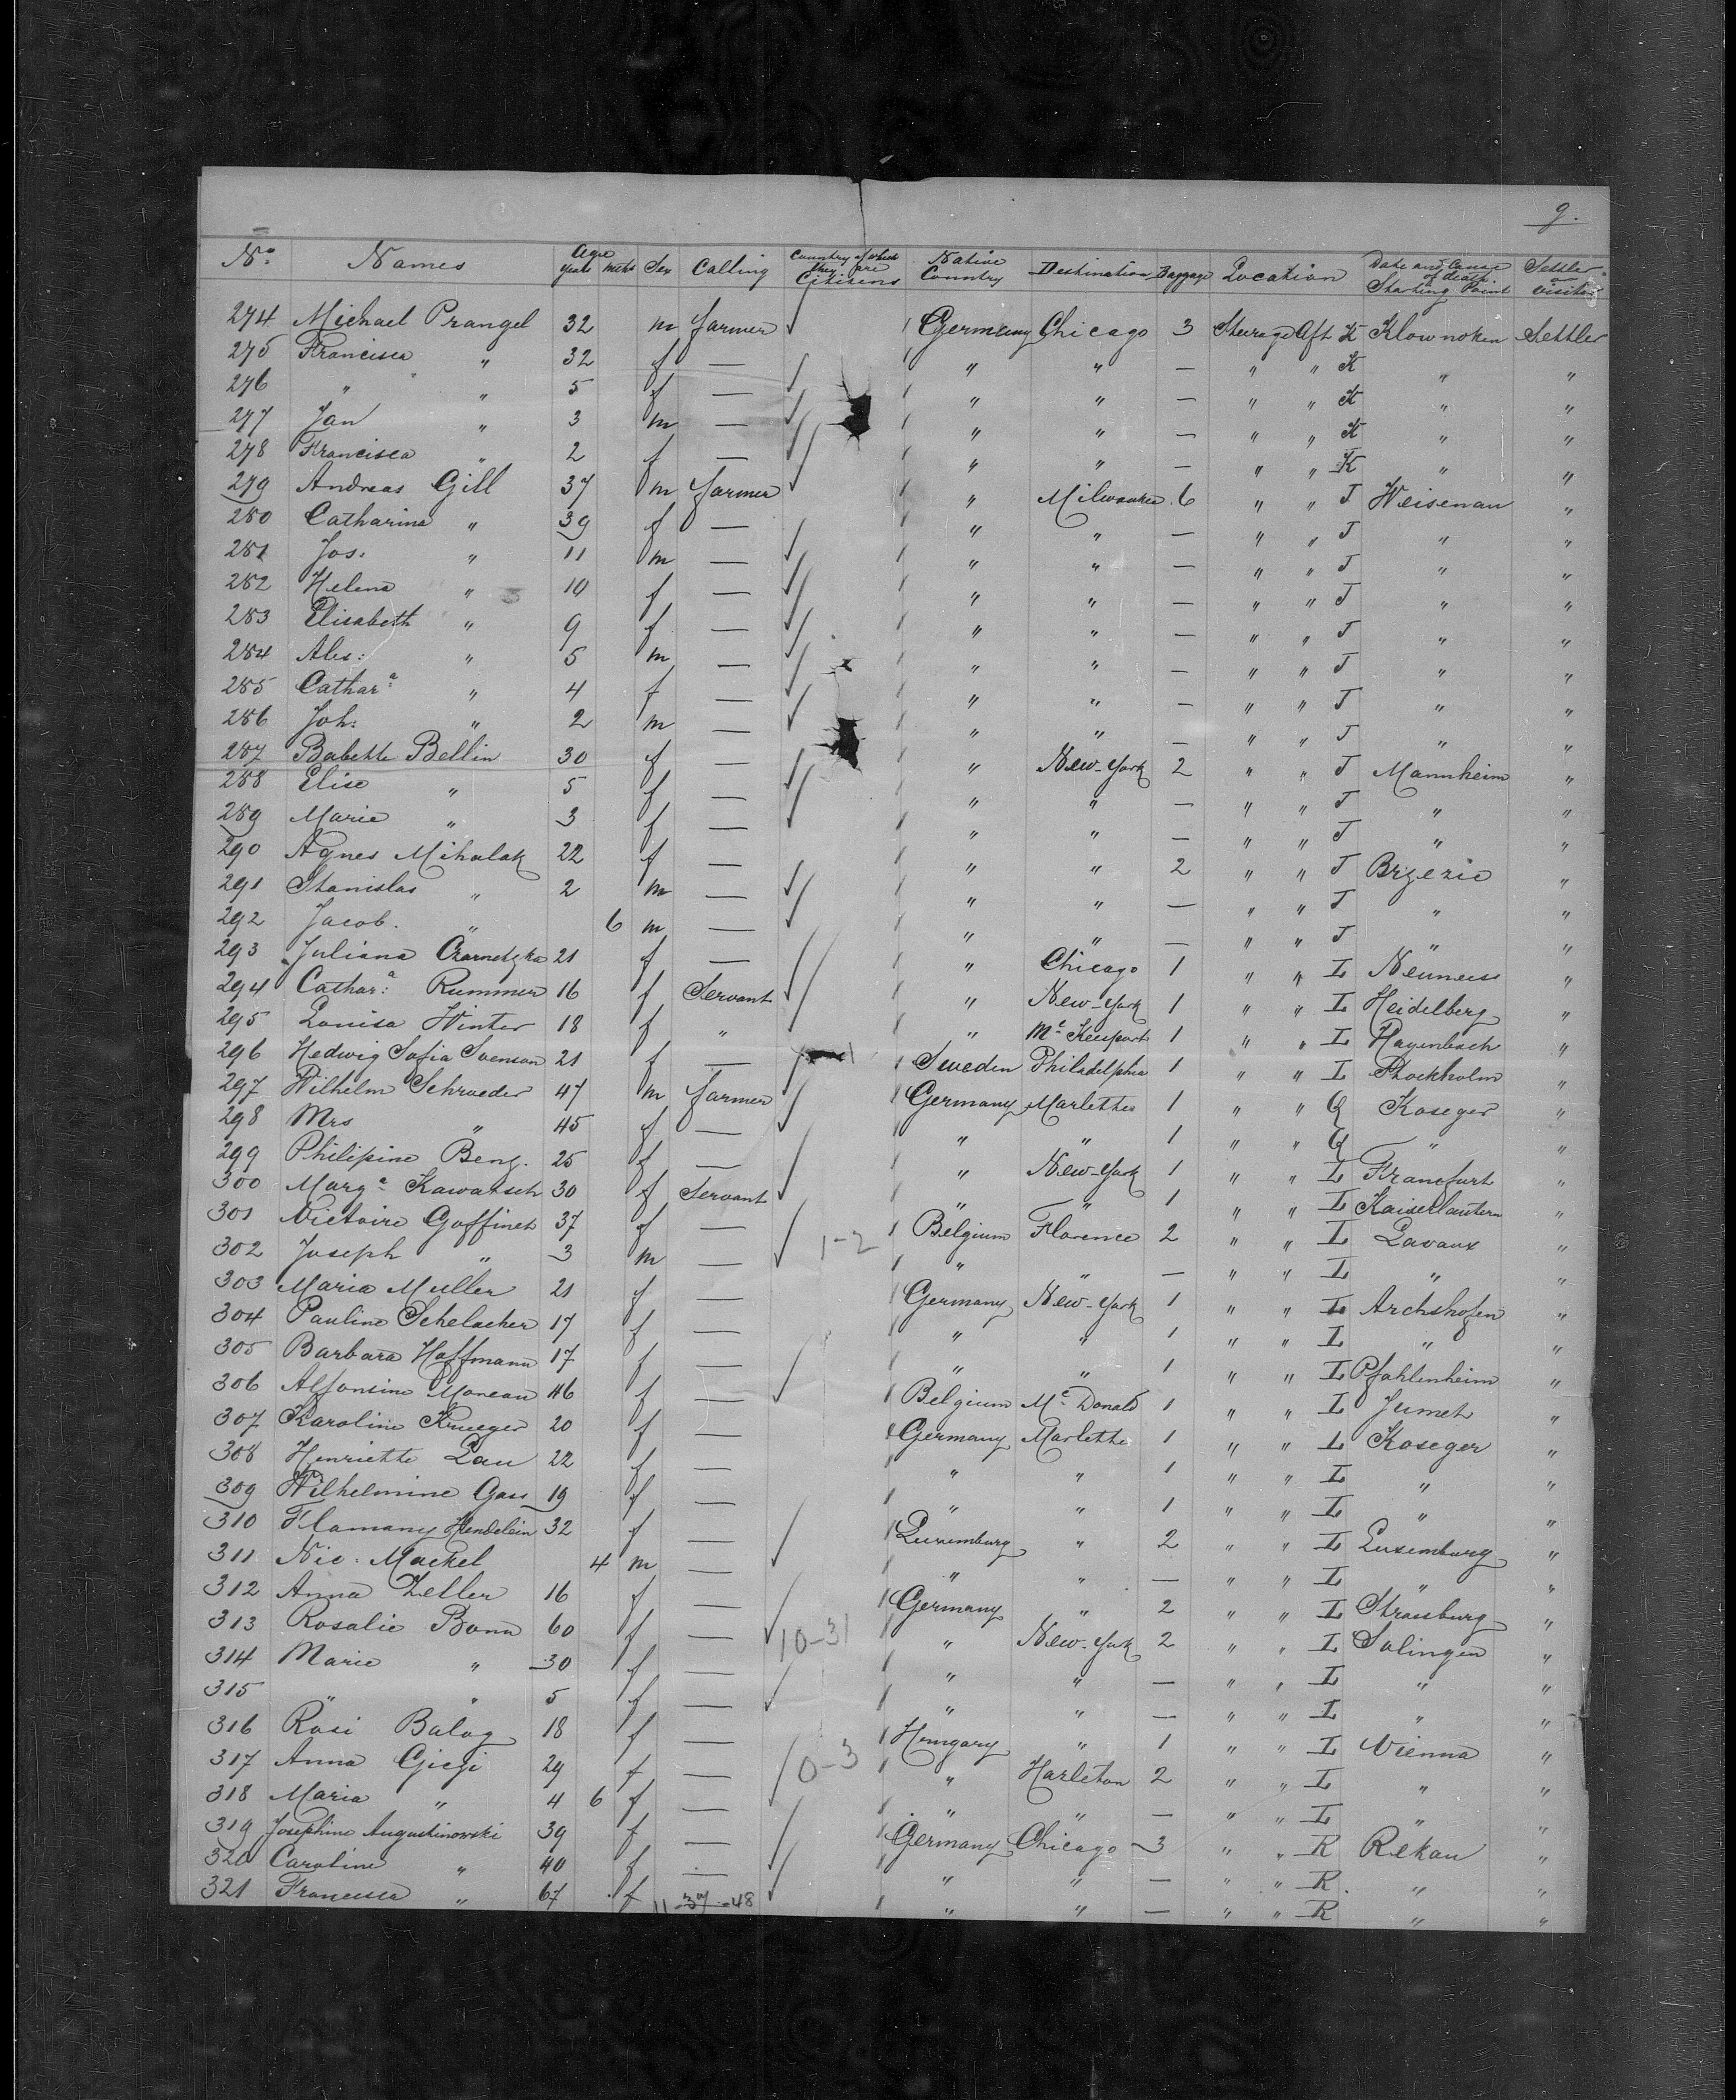 9.
No. Names Age years mths Sex Calling Country of which they are Citizens Native Country Destination Baggage Location Date and Cause of death Starting Point Settler or visitor
274 Michael Prangel 32 m farmer Germany Chicago 3 Steerage Aft K Klownoken Settler
275 Francisca " 32 f — " " — " " K " "
276 " " 5 f — " " — " " K " "
277 Jan " 3 m — " " — " " K " "
278 Francisca " 2 f — " " — " " K " "
279 Andreas Gill 37 m farmer " Milwaukee 6 " " J Weisenau "
280 Catharina " 39 f — " " — " " J " "
281 Jos: " 11 m — " " — " " J " "
282 Helena " 10 f — " " — " " J " "
283 Elisabeth " 9 f — " " — " " J " "
284 Alex: " 5 m — " " — " " J " "
285 Cathar:a " 4 f — " " — " " J " "
286 Joh: " 2 m — " " — " " J " "
287 Babette Bellin 30 f — " New-York 2 " " J Mannheim "
288 Elise " 5 f — " " — " " J " "
289 Marie " 3 f — " " — " " J " "
290 Agnes Mihalak 22 f — " " 2 " " J Brzezie "
291 Stanislas " 2 m — " " — " " J " "
292 Jacob. " 6 m — " " — " " J " "
293 Juliana Czarnetzka 21 f — " Chicago 1 " " L Neuneiss "
294 Cathar:a Rummer 16 f Servant " New-York 1 " " L Heidelberg "
295 Louisa Winter 18 f " " Mc Keesport 1 " " L Hagenbach "
296 Hedwig Sofia Svenson 21 f — Sweden Philadelphia 1 " " L Stockholm "
297 Wilhelm Schroeder 47 m farmer Germany Marlettes 1 " " Q Koseger "
298 Mrs " 45 f — " " 1 " " Q " "
299 Philipine Beng. 25 f — " New-York 1 " " L Francfurt "
300 Marga Kawatsch 30 f Servant " " 1 " " L Kaiserlautern "
301 Victoire Goffinet 37 f — 1-2 Belgium Florence 2 " " L Lavaux "
302 Joseph " 3 m — " " — " " L " "
303 Maria Muller 21 f — Germany New-York 1 " " L Archshofen "
304 Pauline Schelacher 17 f — " " 1 " " L " "
305 Barbara Hoffmann 17 f — " " 1 " " L Pfahlenheim "
306 Alfonsine Moreau 46 f — Belgium Mc Donald 1 " " L Jumet "
307 Karoline Krueger 20 f — Germany Marlette 1 " " L Koseger "
308 Henriette Lau 22 f — " " 1 " " L " "
309 Wilhelmine Gass 19 f — " " 1 " " L " "
310 Flamany Hendelein 32 f — Luxemburg " 2 " " L Luxemburg "
311 Nic: Mackel 4 m — " " — " " L " "
312 Anna Zeller 16 f — Germany " 2 " " L Strassburg "
313 Rosalie Bonn 60 f — 10-31 " New-York 2 " " L Solingen "
314 Marie " 30 f — " " — " " L " "
315 " " 5 f — " " — " " L " "
316 Rosi Balog 18 f — Hungary " 1 " " L Vienna "
317 Anna Giegi 29 f — 0-3 " Harleton 2 " " L " "
318 Maria " 4 6 f — " " — " " L " "
319 Josephine Augustinowski 39 f — Germany Chicago 3 " " R Rekau "
320 Caroline " 40 f — " " — " " R " "
321 Francisca " 67 f 11-37-48 " " — " " R " "